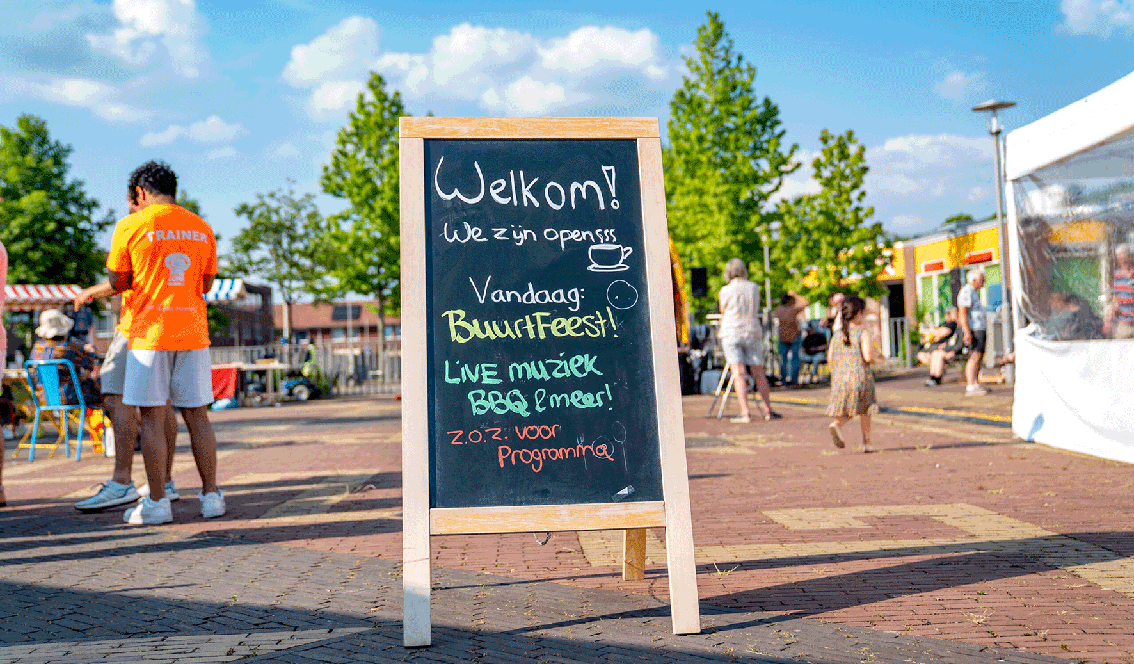 Welkom!
We zijn open
Vandaag:
BuurtFeest!
Live muziek
BBQ & meer!
z.o.z. voor
Programma
TRAINER